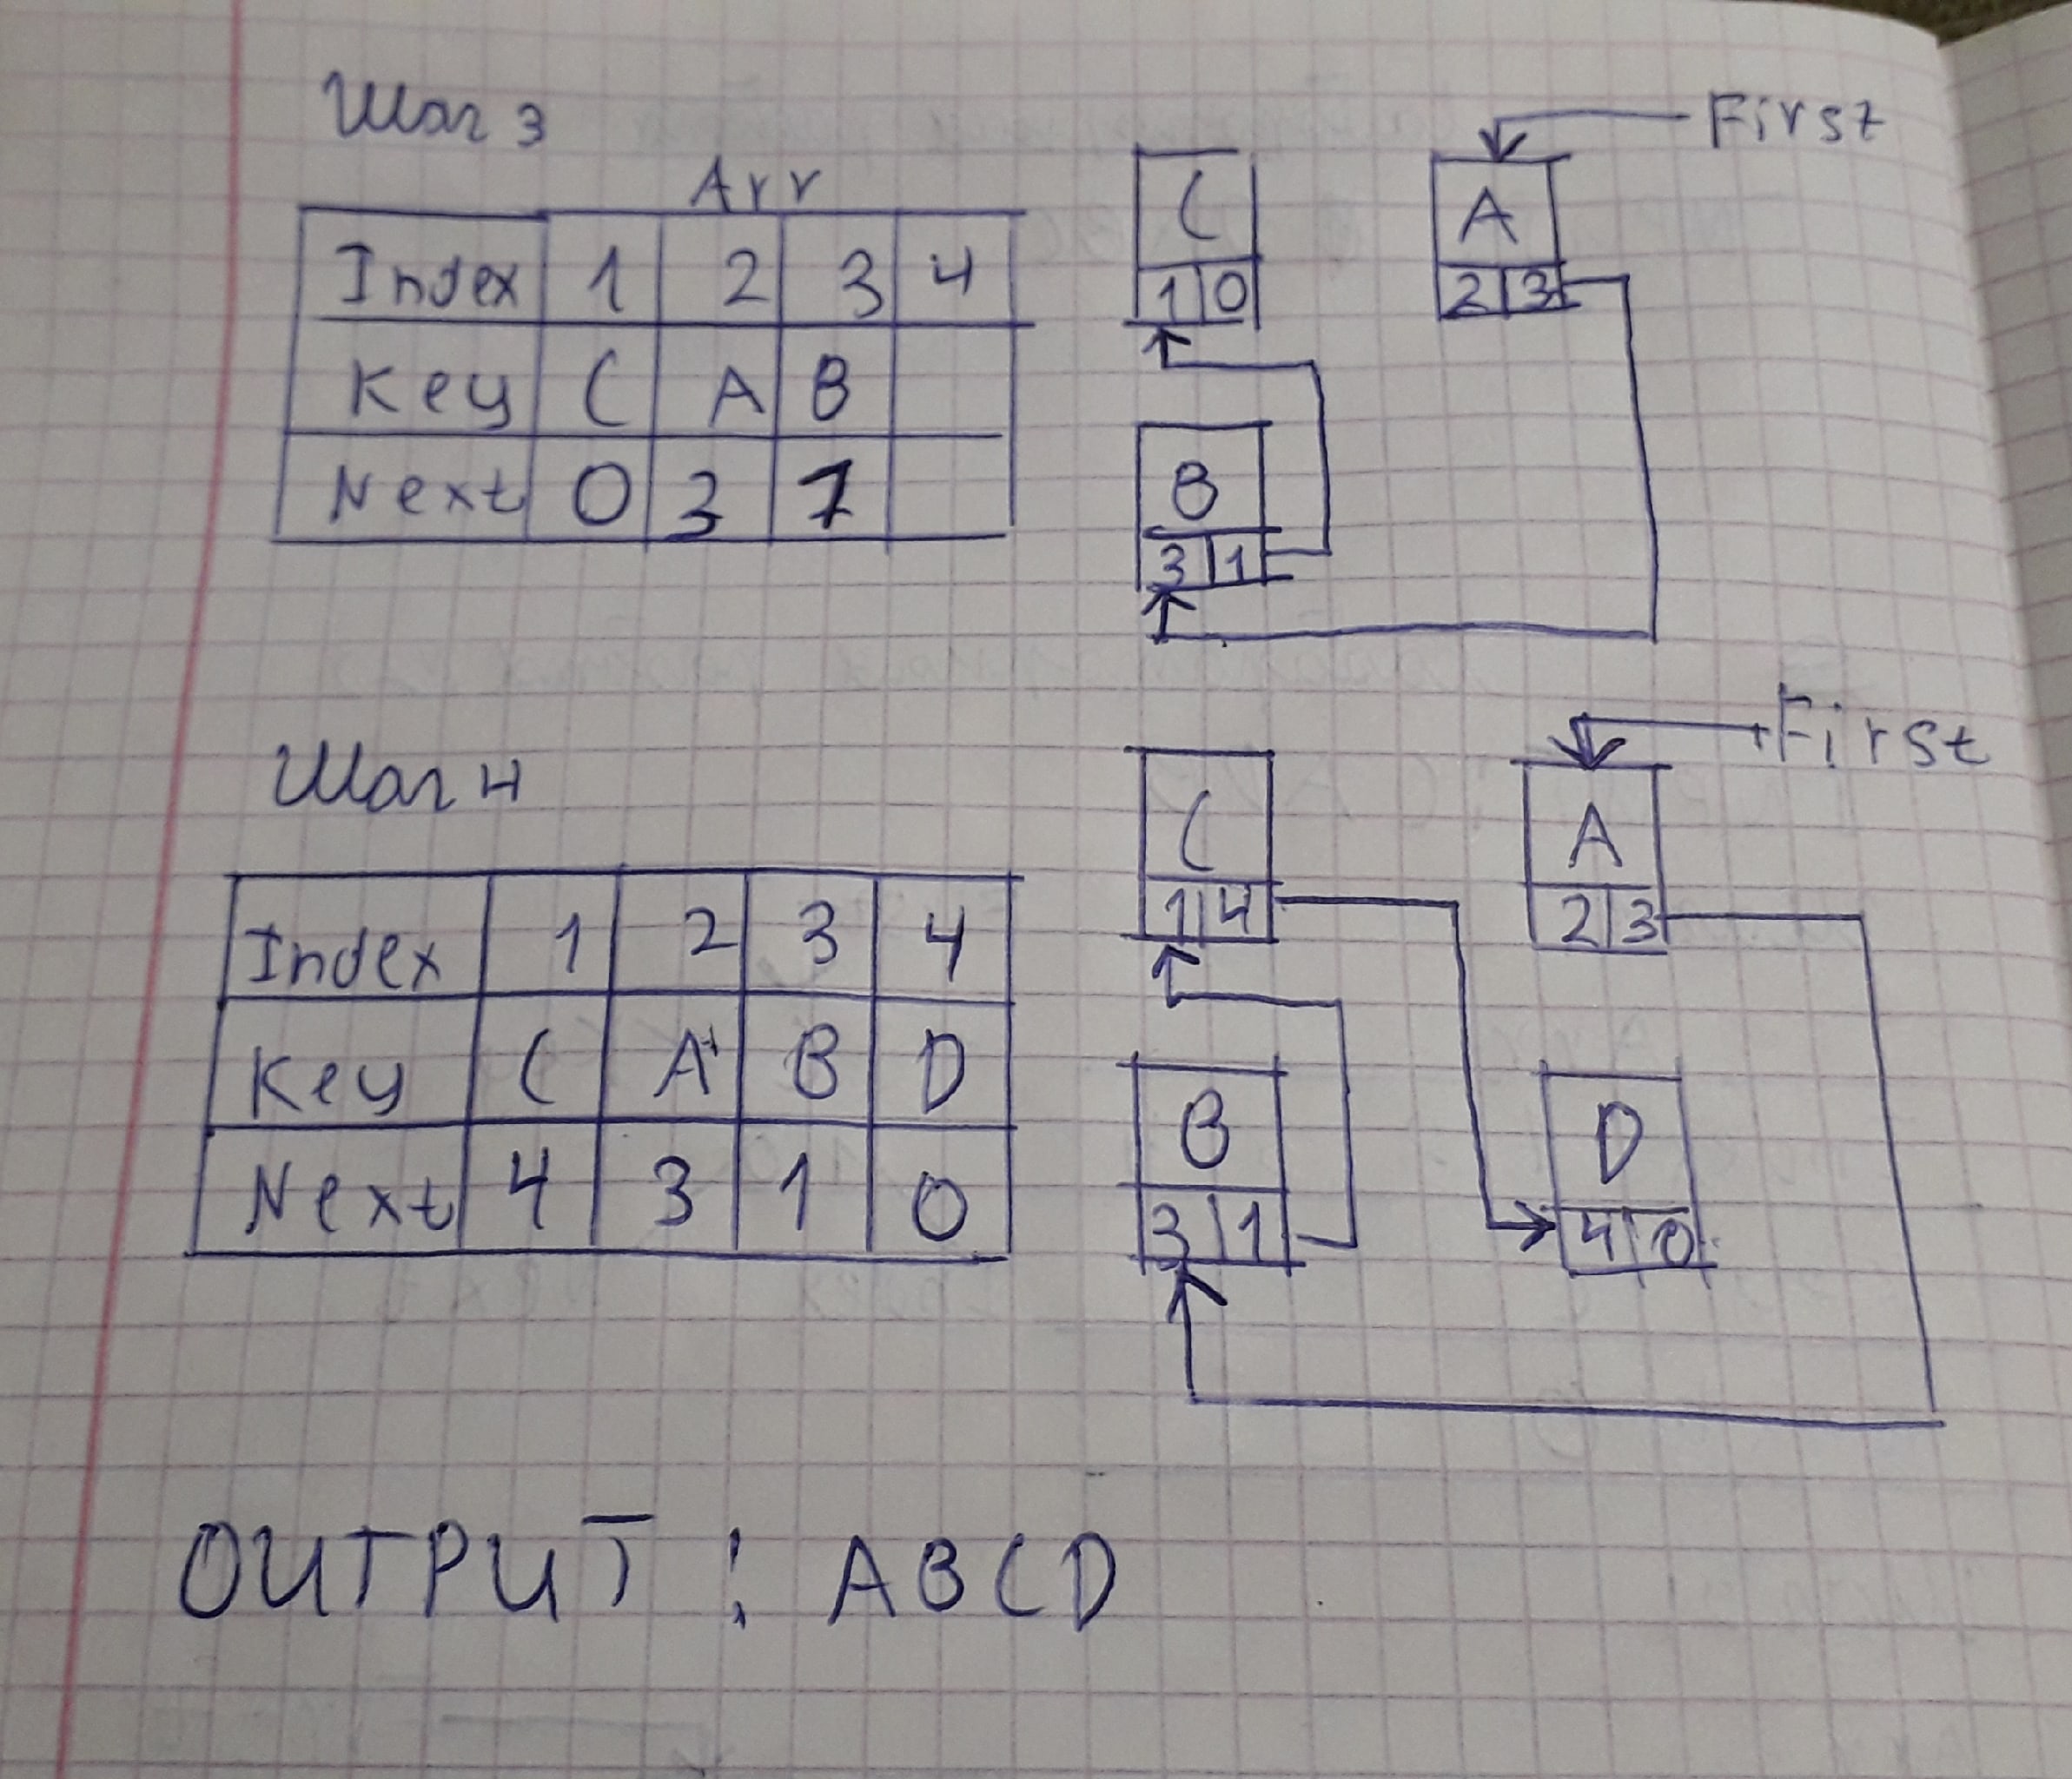 Шаг 3
Arr
Index 1 2 3 4
Key C A B
Next 0 3 1
First
C
1 0
A
2 3
B
3 1
Шаг 4
Index 1 2 3 4
Key C A B D
Next 4 3 1 0
First
C
1 4
A
2 3
B
3 1
D
4 0
OUTPUT : ABCD